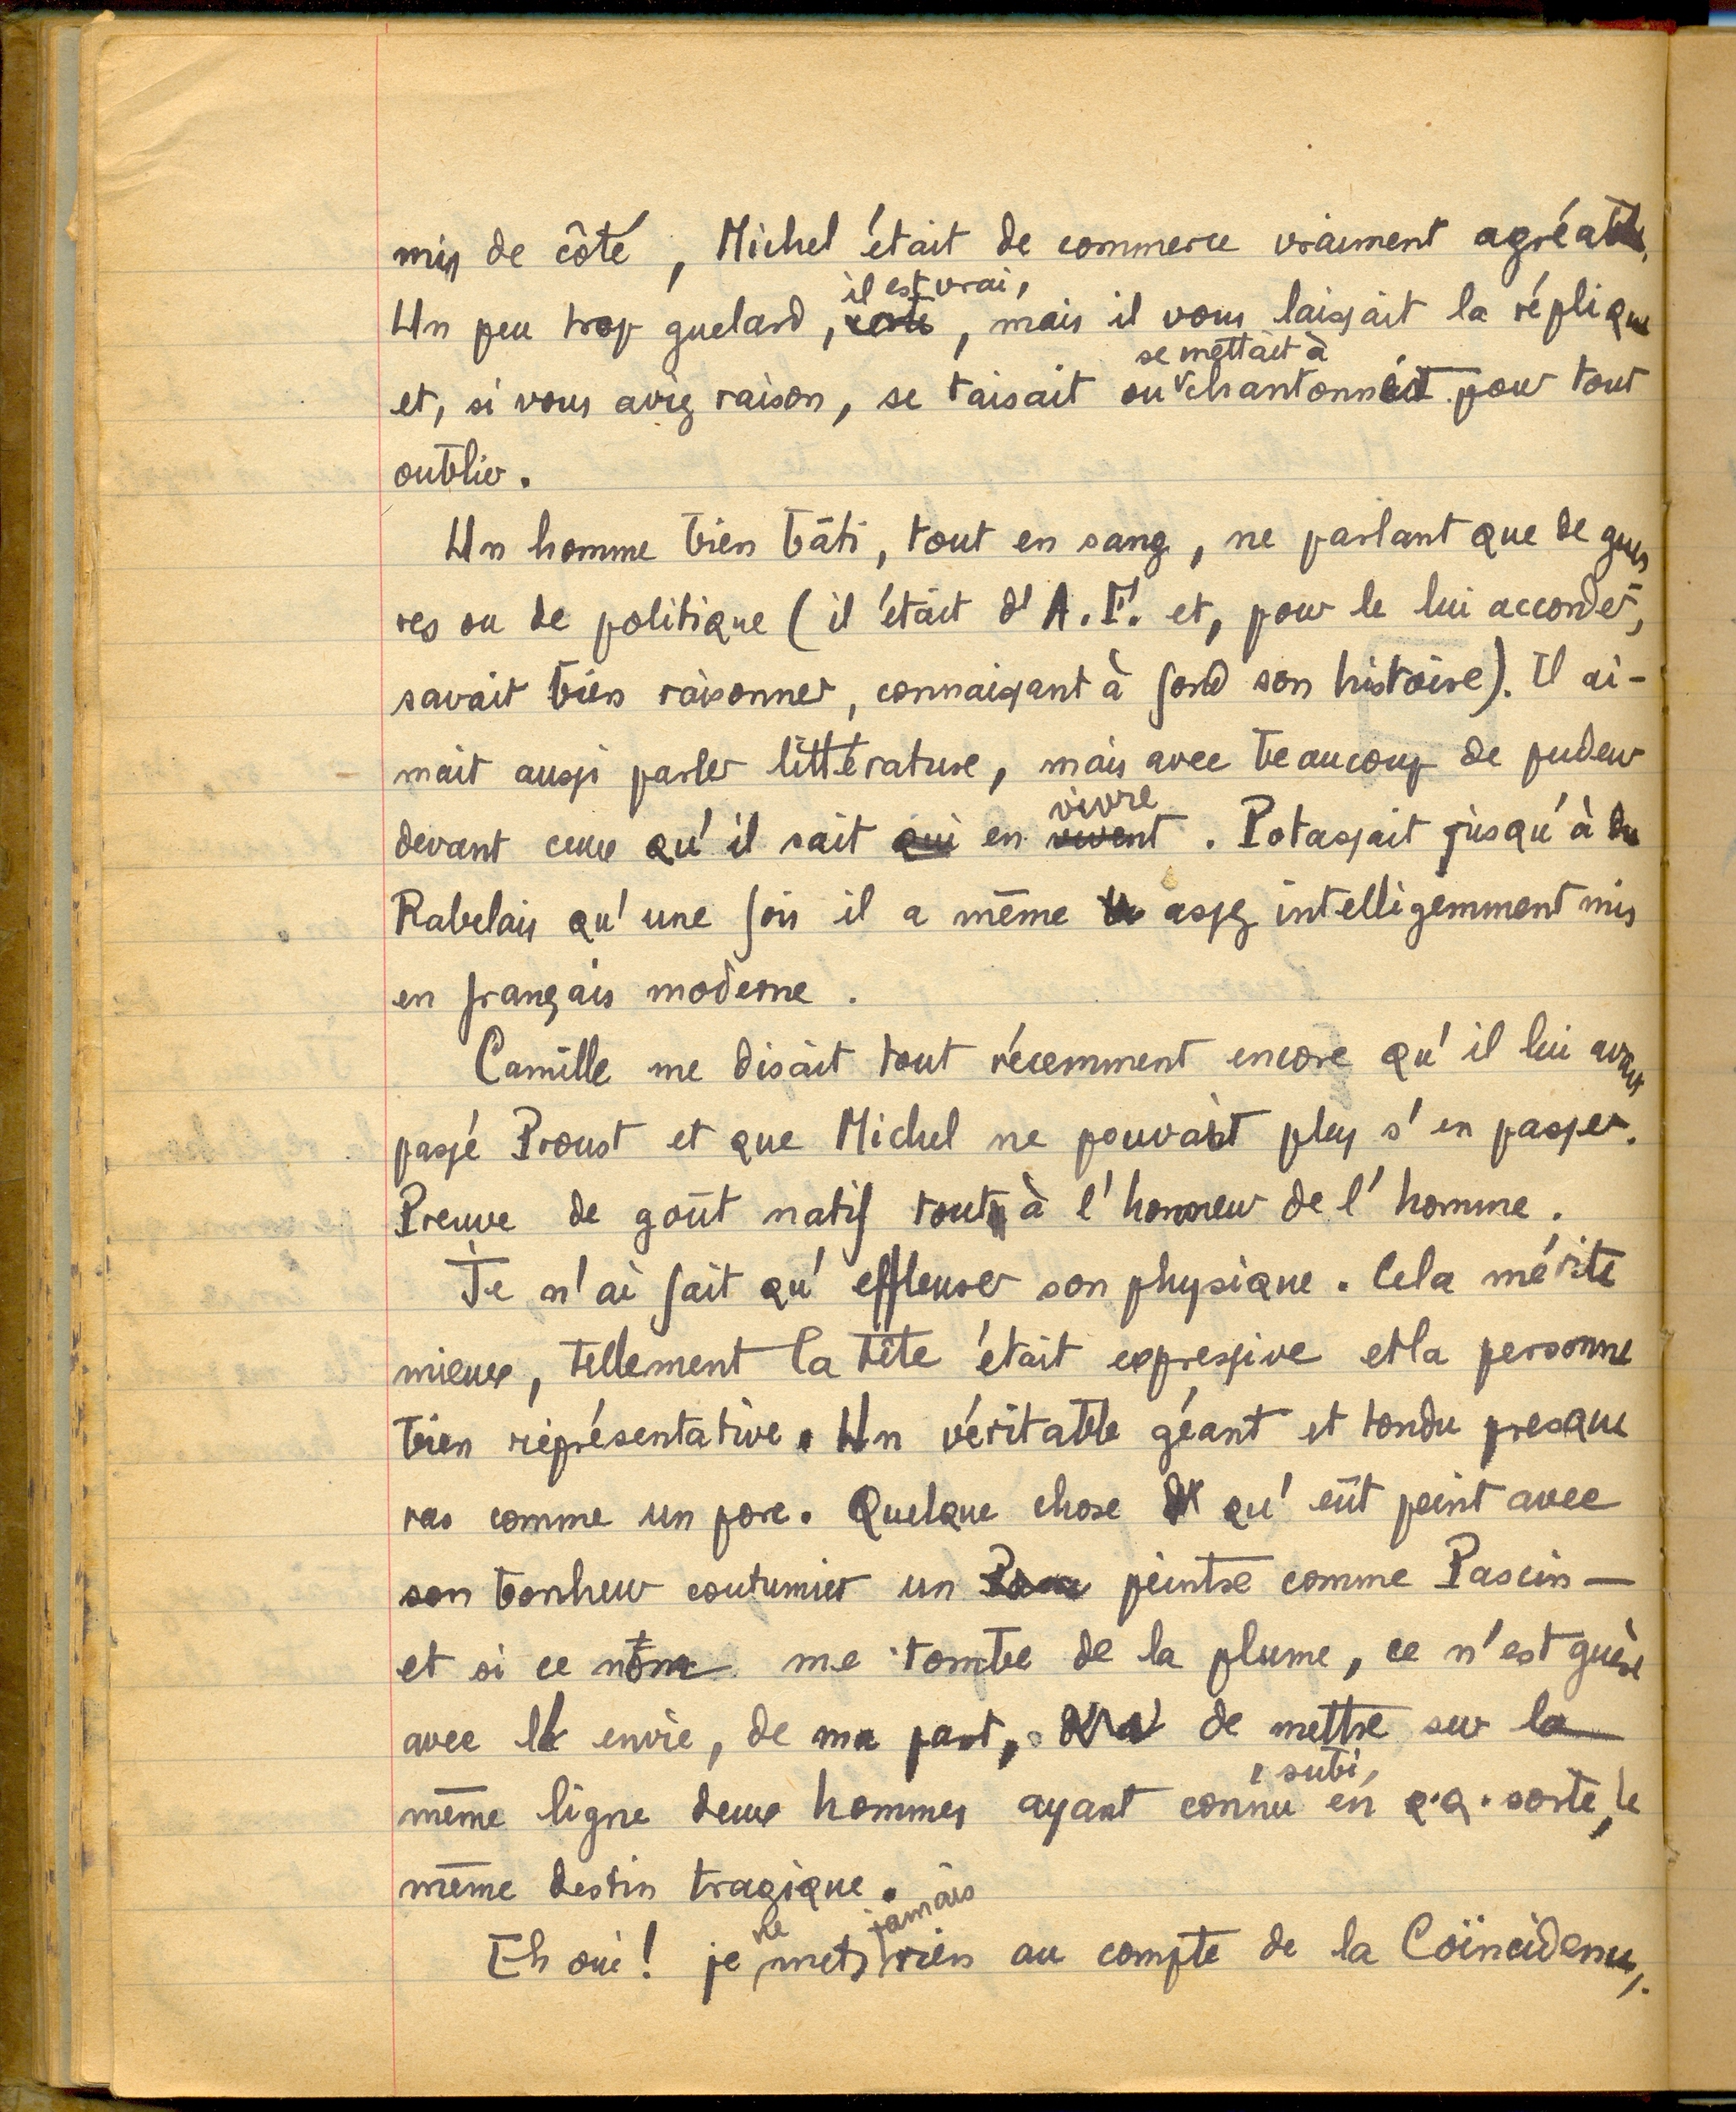 mis de côté, Michel était de commerce vraiment agréable.
il est vrai,
Un peu trop guelard, certe, mais il vous laissait la réplique
se mettait à
et, si vous aviez raison, se taisait ou chantonnait pour tout
oublier.
Un homme bien bâti, tout en sang, ne parlant que de guer
res ou de politique (il était d'A.F. et, pour le lui accorder,
savait bien raisonner, connaissant à fond son histoire). Il ai-
mait aussi parler littérature, mais avec beaucoup de pudeur
vivre
devant ceux qu'il sait qui en vivent. Potassait jusqu'à du
Rabelais qu'une fois il a même assez intelligemment mis
en français moderne.
Camille me disait tout récemment encore qu'il lui avait
passé Proust et que Michel ne pouvait plus s'en passer.
Preuve de goût natif tout à l'honneur de l'homme.
Je n'ai fait qu'effleurer son physique. Cela mérite
mieux, tellement la tête était expressive et la personne
bien représentative. Un véritable géant et tondu presque
ras comme un porc. Quelque chose qu'eût peint avec
son bonheur coutumier un peintre comme Pascin —
et si ce nom me tombe de la plume, ce n'est guère
avec envie, de ma part, de mettre sur la
subi,
même ligne deux hommes ayant connu en q.q. sorte, le
même destin tragique.
ne jamais
Eh oui! je mets rien au compte de la Coïncidence,.